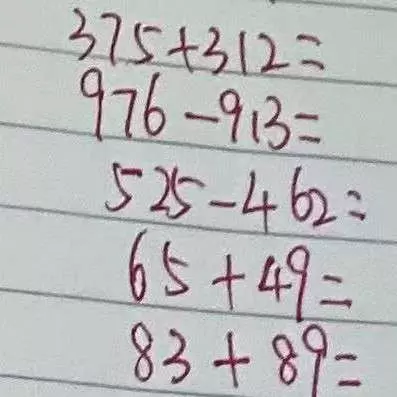 375+312=
976-913=
525-462=
65+49=
83+89=